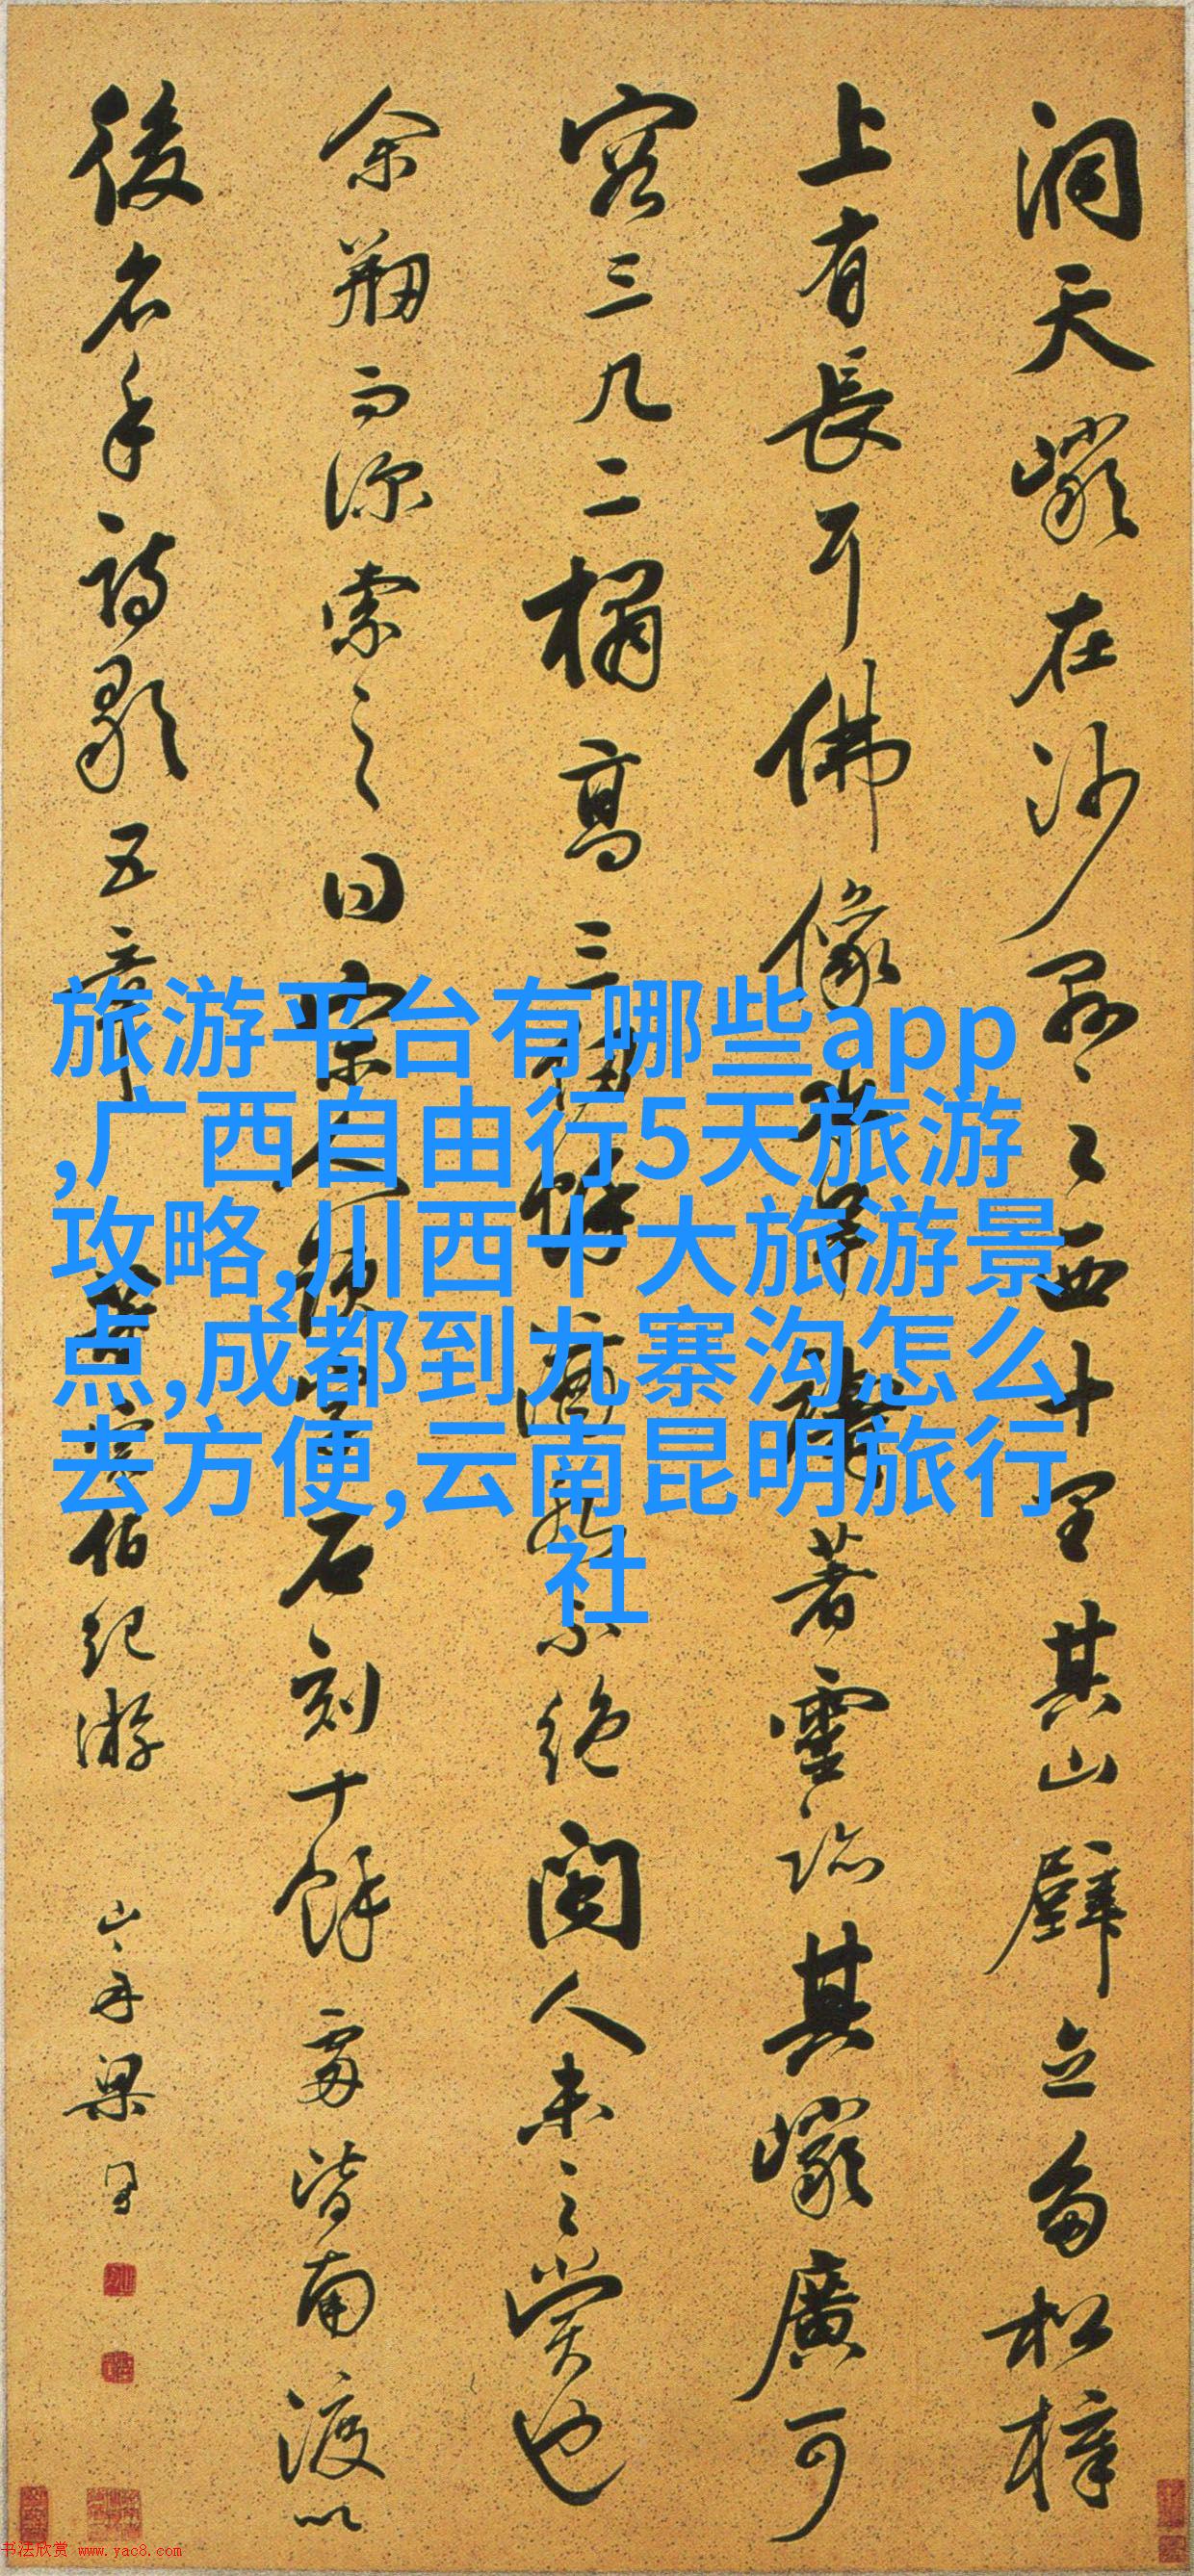 洞天巖在沙縣之西十里其山壁立多松樟
上有長耳佛像水旱禱著靈跡其巖廣可
容三几二榻高三仞餘滴水不絕閩人未之賞也
余搠而深索之曰宋人題字石刻十餘處皆南渡以
後名手詩歌五章
伯紀游
山舟梁同書
旅游平台有哪些app
,广西自由行5天旅游
攻略,川西十大旅游景
点,成都到九寨沟怎么
去方便,云南昆明旅行
社
书法欣赏 www.yac8.com